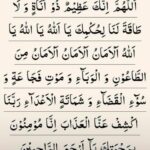 اَللّٰهُمَّ اِنَّكَ عَظِيْمٌ ذُوْ اَنَاةٍ وَلَا
طَاقَةَ لَنَا لِحُكْمِكَ يَا اَللّٰهُ يَا اَللّٰهُ يَا
اَللّٰهُ اَلْاَمَانُ اَلْاَمَانُ اَلْاَمَانُ مِنَ
الطَّاعُوْنِ وَ الْوَبَآءِ وَ مَوْتِ فَجَاعَةٍ وَ
سُوْءِ الْقَضَآءِ وَ شَمَاتَةِ الْاَعْدَآءِ رَبَّنَا
اكْشِفْ عَنَّا الْعَذَابَ اِنَّا مُؤْمِنُوْنَ
بِرَحْمَتِكَ يَآ اَرْحَمَ الرَّاحِمِيْنَ